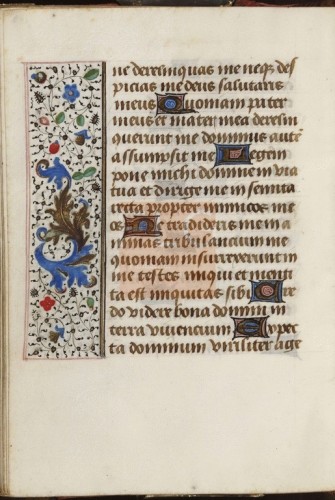 ne derelinquas me neq; des
picias me deus salutaris
meus Quoniam pater
meus et mater mea derelin
querunt me dominus autē
assumpsit me Legem
pone michi domine in via
tua et dirige me in semita
recta propter inimicos me
os Ne tradideris me in a
nimas tribulancium me
quoniam insurrexerunt in
me testes iniqui et menti
ta est iniquitas sibi Cre
do videre bona domini in
terra viuencium Expec
ta dominum viriliter age